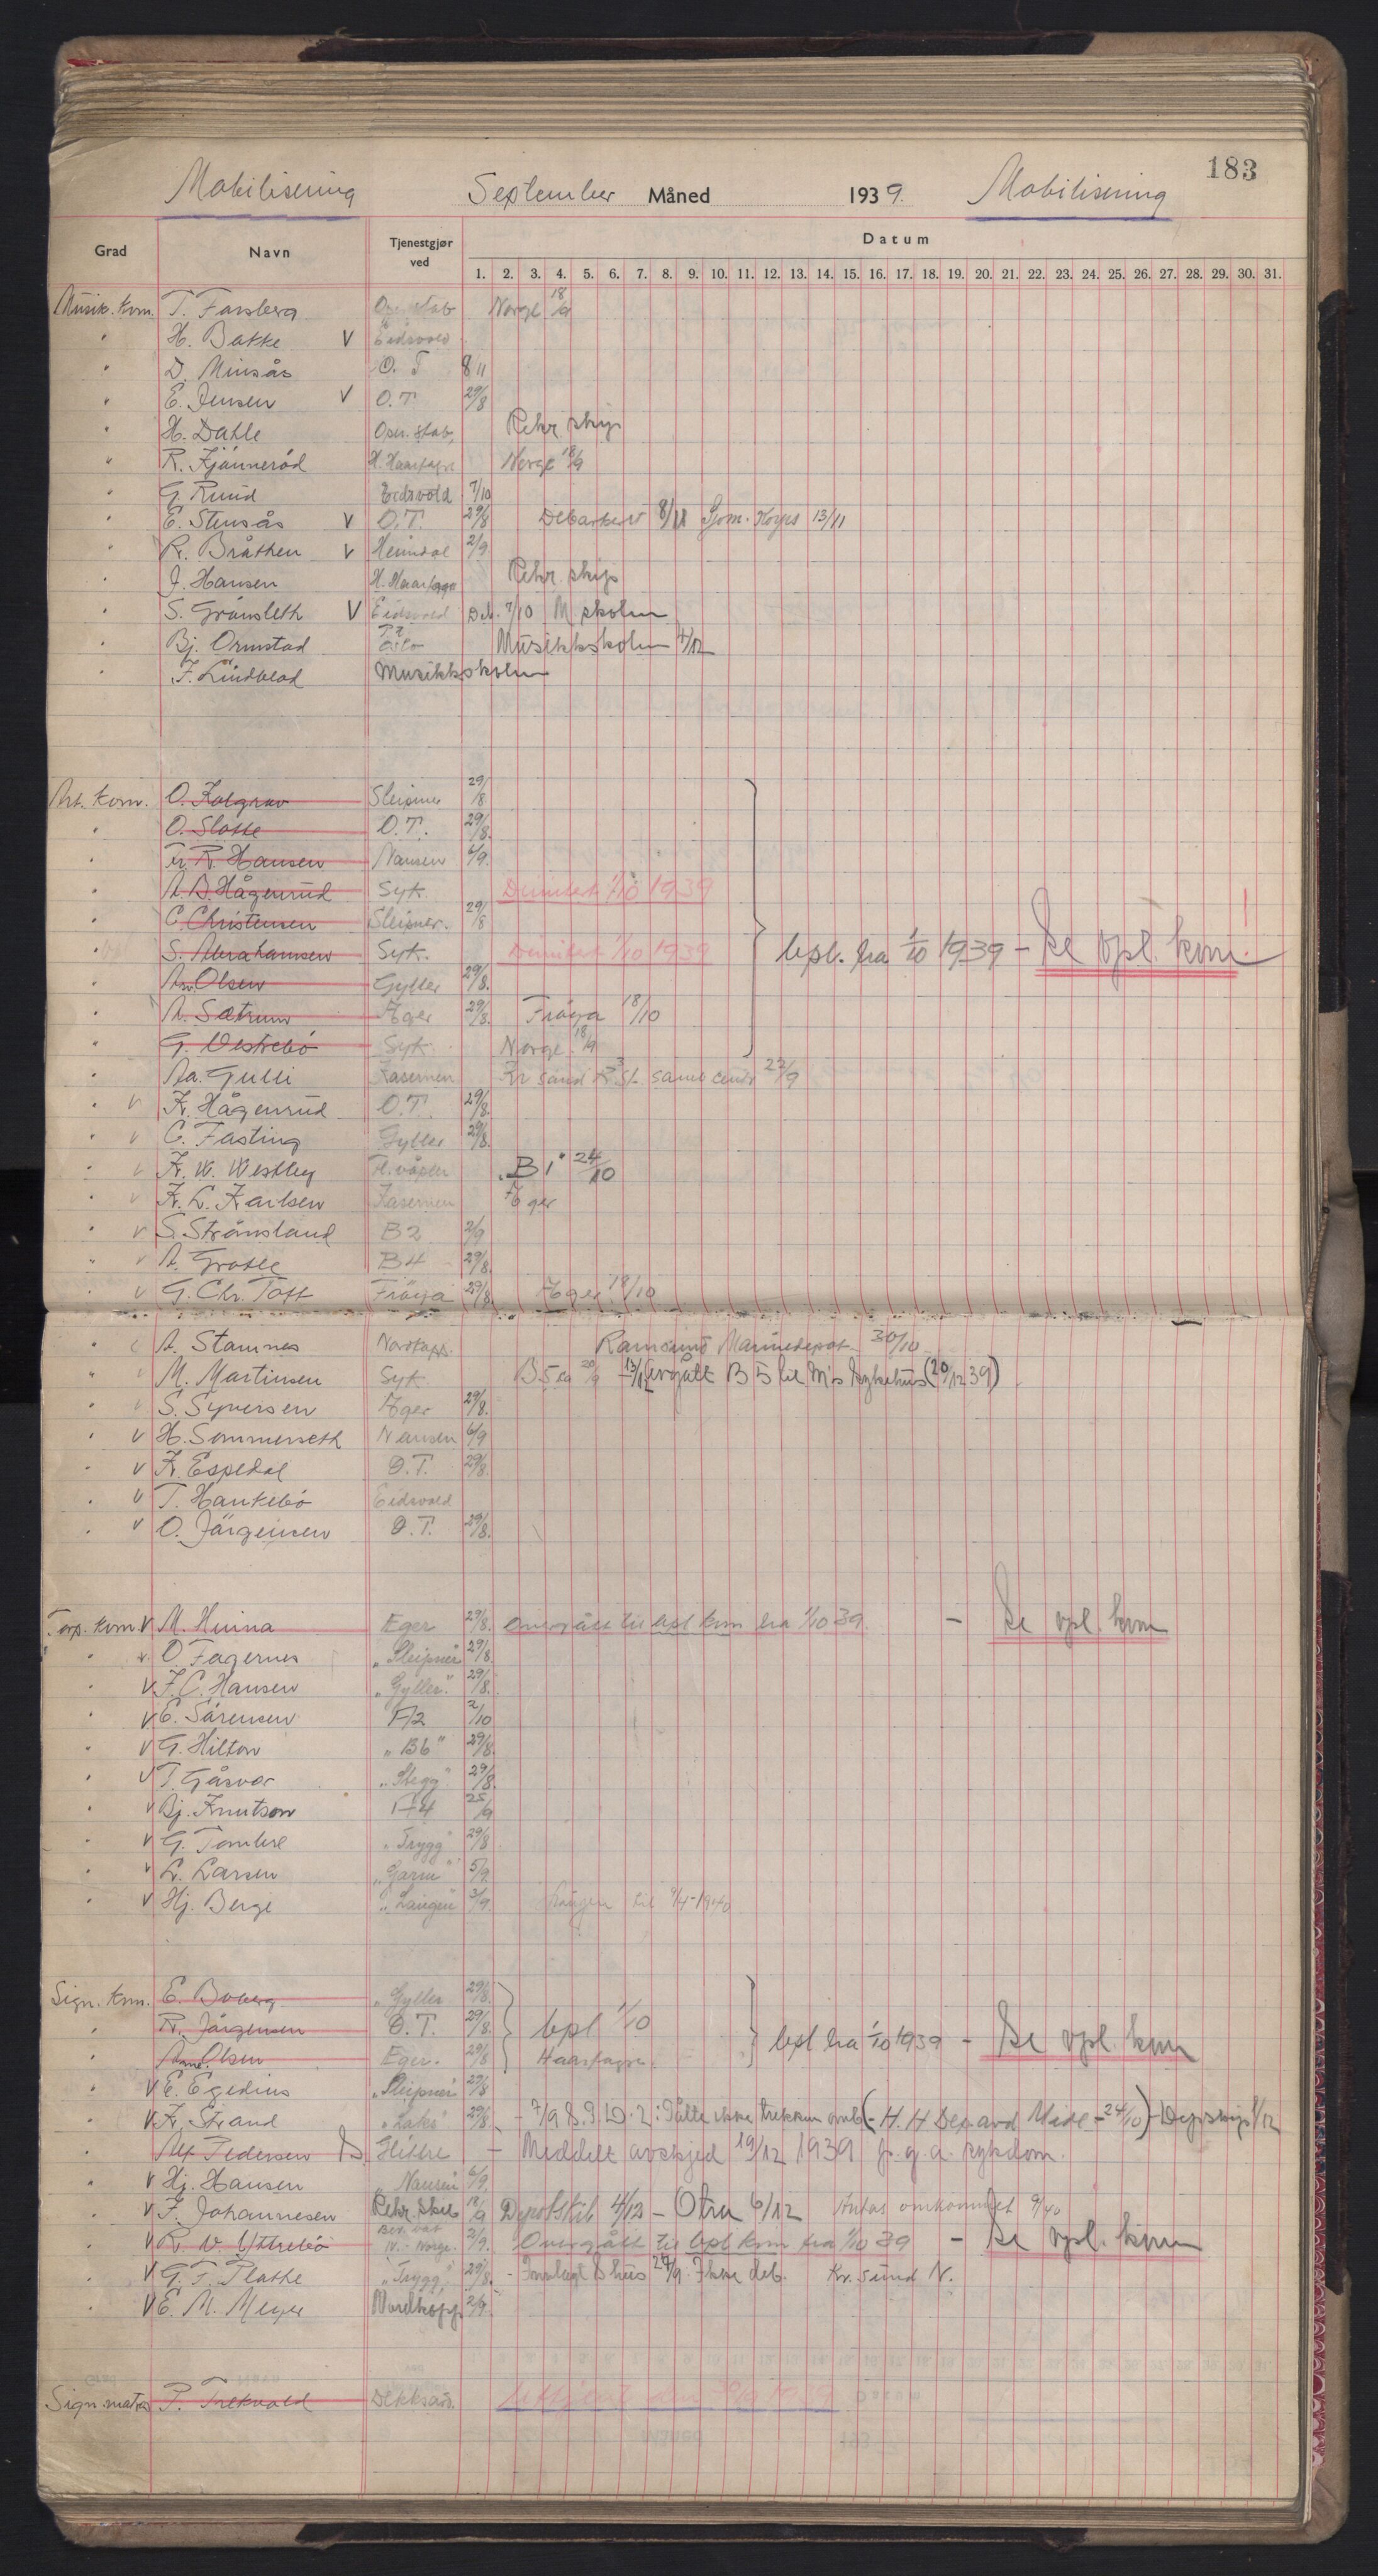 183
Mobilisering September Måned 1939. Mobilisering
Grad Navn Tjenestgjør ved Datum
1. 2. 3. 4. 5. 6. 7. 8. 9. 10. 11. 12. 13. 14. 15. 16. 17. 18. 19. 20. 21. 22. 23. 24. 25. 26. 27. 28. 29. 30. 31.
Musik. kvm. T. Farsberg Op. stab Norge 18/9
" H. Bakke V Eidsvold
" D. Minsås O. T 8/11
" E. Jensen V O.T 29/8
" H. Dahle Oper. stab, Rekr. skip
" R. Kjønnerød H. Haarfagre Norge 18/9
" G. Ruud Eidsvold 7/10
" E. Stensås V O.T. 29/8 Debarkert 8/11 Sjøm. Korps 13/11
" R. Bråthen V Heimdal 2/9
" J. Hansen H. Haarfagre Rekr. skip
" S. Grønsleth V Eidsvold Deb. 7/10 M skolen
" Bj. Ormstad Oslo Musikkskolen 4/12
" F. Lindblad Musikkskolen
Art. kvm. O. Kolgrav Sleipner 29/8
" O. Slotte O.T. 29/8.
" Fr. R. Hansen Nansen 6/9.
" A. B. Hågenrud Syk. Dimitert 1/10 1939
" C. Christensen Sleipner. 29/8
" S. Abrahamsen Syk. Dimitert 1/10 1939 bpl. fra 1/10 1939 – Se vpl. kvm!
" Olsen Gyller 29/8.
" A. Sætrum Æger 29/8. Frøya 18/10
" G. Vestrebø Syk. Norge 18/9
" Aa. Gulli Kasernen Kr sand S 3 St. samb centr 22/9
" V K. Hågenrud O.T. 29/8.
" V C. Fasting Gyller 29/8.
" V K. W. Westbey Fl. våpen "B 1" 24/10
" V K. L. Karlsen Kasernen Æger
" V S. Strømsland B2 2/9
" V A. Grotle B4 29/8.
" V G. Chr. Toft Frøya 29/8. Æger 18/10
" A. Stamnes Nordkapp. Ramsund Marinedepot 30/10
" M. Martinsen Syk B 5 20/9 13/12 B 5 til M's sykehus (20/12 39)
" S. Syversen Æger 29/8.
" V H. Sommerseth Nansen 6/9
" V K. Espedal O.T. 29/8.
" V T. Haukebø Eidsvold
" V O. Jørgensen O.T. 29/8.
Torp. kvm. V M. Hinna Eger 29/8. Overgått til bpl kvm fra 1/10 39. – Se vpl. kvm
" V O. Fagernes "Sleipner" 29/8.
" V F. C. Hansen "Gyller." 29/8.
" V E. Sørensen A2 2/10
" V G. Hilton "B6" 29/8.
" V T. Gåsvær "Stegg" 29/8.
" V Bj. Knutson A4 25/9
" V G. Tombre "Trygg" 29/8
" V L. Larsen "Garm" 5/9.
" V Hj. Berge "Laugen" 3/9. Laugen til 9/4-1940
Sign. kvm. E. Boberg "Gyller 29/8.
" R. Jørgensen O.T. 29/8. bpl 1/10 bpl fra 1/10 1939 – Se vpl. kvm
" Olsen Eger. 29/8 Haarfagre.
" V E. Egedius "Sleipner" 29/8
" V K. Strand "Laks" 29/8. – 7/9 Måtte ikke trekken omb (– H. H Dep avd Mide – 24/10) – Depskip 1/12
" Alf Pedersen Heibre – Meddelt avskjed 19/12 1939 p. g. a. sykdom.
" V Hj. Hansen "Nansen" 6/9.
" V F. Johannesen Rekr. skib 18/9 Depotskib 4/12 – Otra 6/12 Antas omkommet 9/40
" V R. V. Yttrebø N. Norge. 2/9. Overgått til bpl kvm fra 1/10 39 – Se vpl. kvm
" V G. F. Plathe "Trygg" 29/8. – Innlagt S hus 27/9 Ikke deb. Kr. sund N.
" V E. M. Meyer Nordkapp. 2/9.
Sign. matr. P. Trekvold Dekksavd.